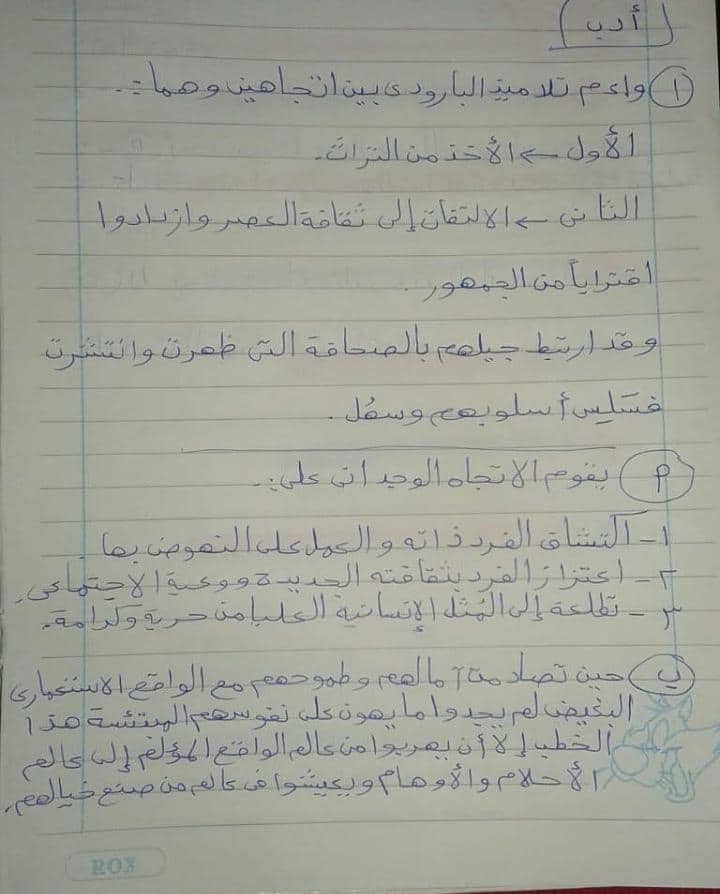 أدب
١ واءم تلاميذ البارودى بين اتجاهين وهما :-
الأول ← الأخذ من التراث.
الثانى ← الالتفات إلى ثقافة العصر وازدادوا
اقتراباً من الجمهور.
وقد ارتبط جيلهم بالصحافة التى ظهرت وانتشرت
فسَلِس أسلوبهم وسهُل.
٢ يقوم الاتجاه الوجدانى على :-
١- اكتشاف الفرد ذاته والعمل على النهوض بها.
٢- اعتزاز الفرد بثقافته الجديدة ووعية الاجتماعى.
٣- تطلعة إلى المُثل الإنسانية العليا من حرية وكرامة.
ب حين تصادمت آمالهم وطموحهم مع الواقع الاستعمارى
البغيض لم يجدوا ما يهون على نفوسهم المبتئسة هذا
الخطب إلا أن يهربوا من عالم الواقع المؤلم إلى عالم
الأحلام والأوهام ويعيشوا فى عالم من صنع خيالهم.
R03